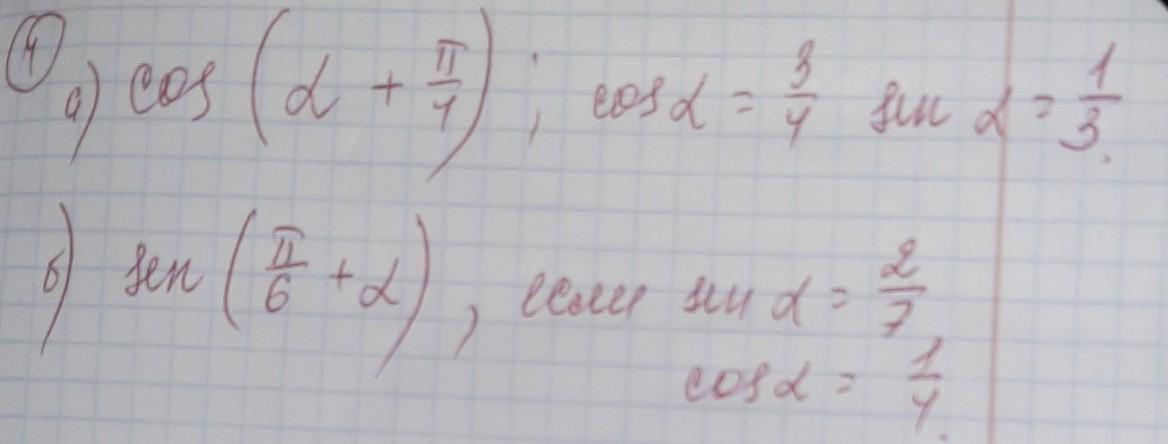 ④ а) cos (α + π/4); cos α = 3/4 sin α = 1/3.
б) sin (π/6 + α), если sin α = 2/7
cos α = 1/4.